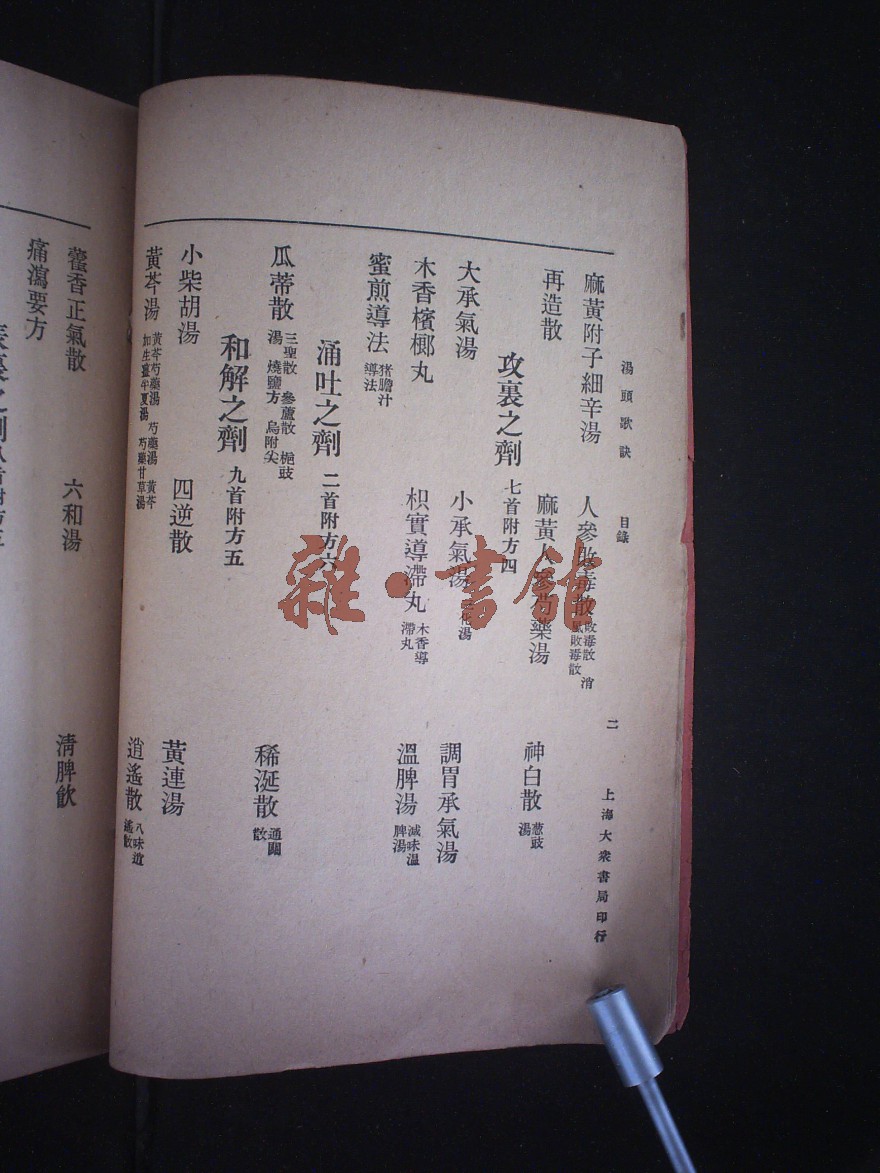 湯頭歌訣 目錄 二 上海大衆書局印行
麻黃附子細辛湯 人參敗毒散 敗毒散 消風敗毒散
再造散 麻黃人參芍藥湯 神白散 葱豉湯
攻裏之劑 七首附方四
大承氣湯 小承氣湯 花湯 調胃承氣湯
木香檳榔丸 枳實導滯丸 木香導滯丸 溫脾湯 減味溫脾湯
蜜煎導法 猪膽汁導法
涌吐之劑 二首附方六
瓜蒂散 三聖散 參蘆散 梔豉湯 燒鹽方 烏附尖 稀涎散 通關散
和解之劑 九首附方五
小柴胡湯 四逆散 黃連湯
黃芩湯 黃芩芍藥湯 芍藥湯 黃芩加生薑半夏湯 芍藥甘草湯 逍遙散 八味逍遙散
藿香正氣散 六和湯 清脾飲
痛瀉要方
雜·書館